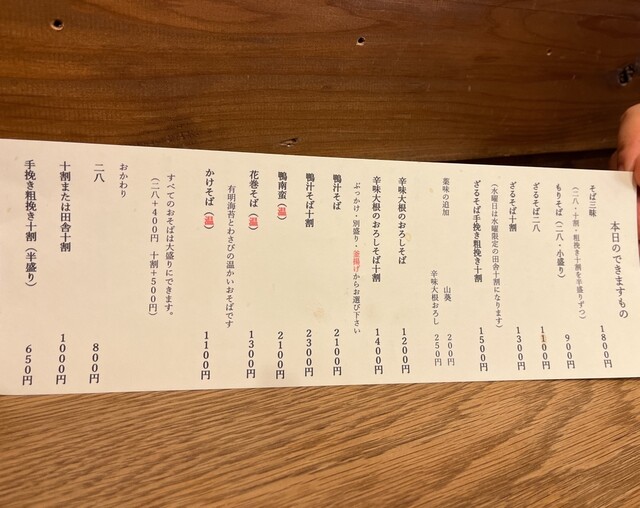 本日のできますもの
そば三味 1800円
（二八・十割・粗挽き十割を半盛りずつ）
もりそば（二八・小盛り） 900円
ざるそば二八 1100円
ざるそば十割 1300円
（水曜日は水曜限定の田舎十割になります）
ざるそば手挽き粗挽き十割 1500円
薬味の追加
山葵 200円
辛味大根おろし 250円
辛味大根のおろしそば 1200円
辛味大根のおろしそば十割 1400円
ぶっかけ・別盛り・釜揚げからお選び下さい
鴨汁そば 2100円
鴨汁そば十割 2300円
鴨南蛮（温） 2100円
花巻そば（温） 1300円
有明海苔とわさびの温かいおそばです
かけそば（温） 1100円
すべてのおそばは大盛りにできます。
（二八＋400円 十割＋500円）
おかわり
二八 800円
十割または田舎十割 1000円
手挽き粗挽き十割（半盛り） 650円